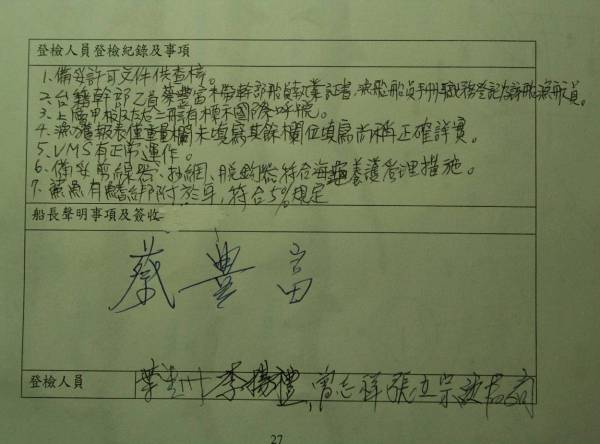 登檢人員登檢紀錄及事項
1.備妥許可文件供查核。
2.台籍幹部乙員蔡豐富未帶幹部船員執業証書,漁船船員手冊職務登記為漁船漁航員。
3.上層甲板及左右二舷有標示國際呼號。
4.漁獲報表僅重量欄未填寫其餘欄位填寫尚稱正確詳實。
5.VMS有正常運作。
6.備妥剪線器、抄網、脫鉤器符合海龜養護管理措施。
7.鯊魚有鰭綁附於身,符合5%規定
船長聲明事項及簽收
蔡豐富
登檢人員 李揚禮 曾志祥 張立宗
27